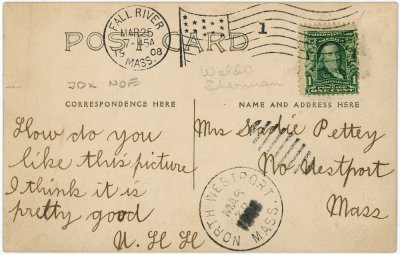 FALL RIVER
MAR 25
7-45A
19 08
MASS.
1
POST CARD
JDX HOF
Waldo
Sherman
CORRESPONDENCE HERE
NAME AND ADDRESS HERE
How do you
like this picture
I think it is
pretty good
N. H H
Mrs Sadie Pettey
No Westport
Mass
NORTH WESTPORT
MAR
MASS.